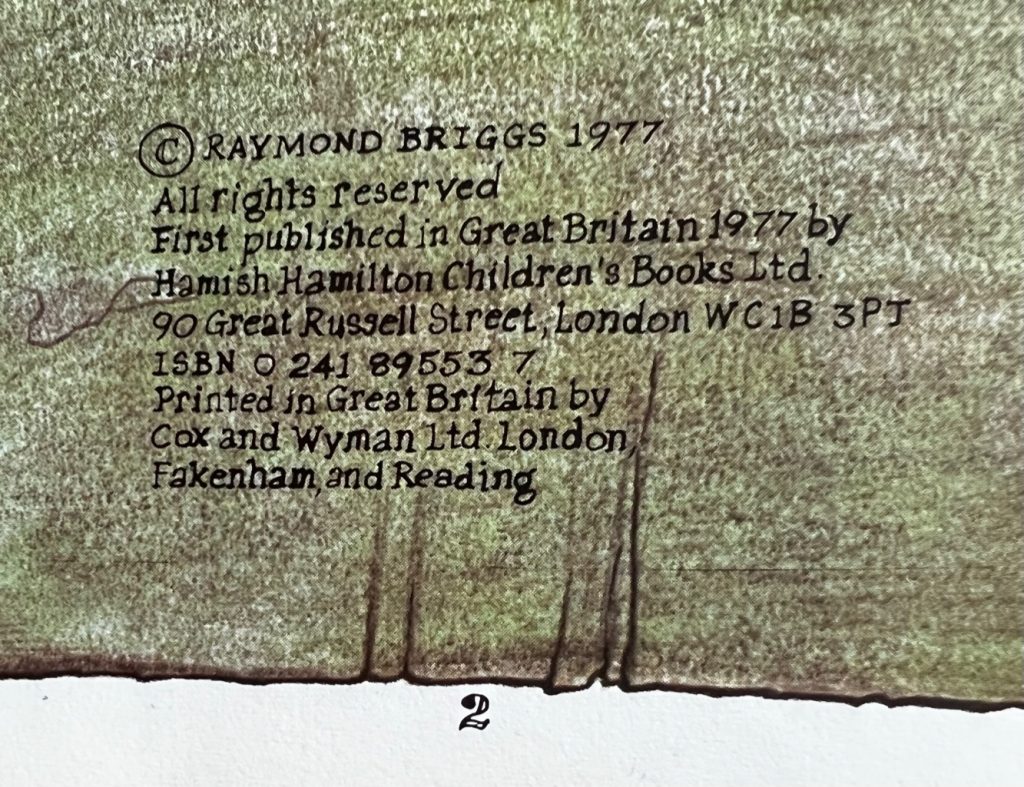 © RAYMOND BRIGGS 1977
All rights reserved
First published in Great Britain 1977 by
Hamish Hamilton Children's Books Ltd.
90 Great Russell Street, London WC1B 3PT
ISBN 0 241 89553 7
Printed in Great Britain by
Cox and Wyman Ltd. London,
Fakenham, and Reading
2